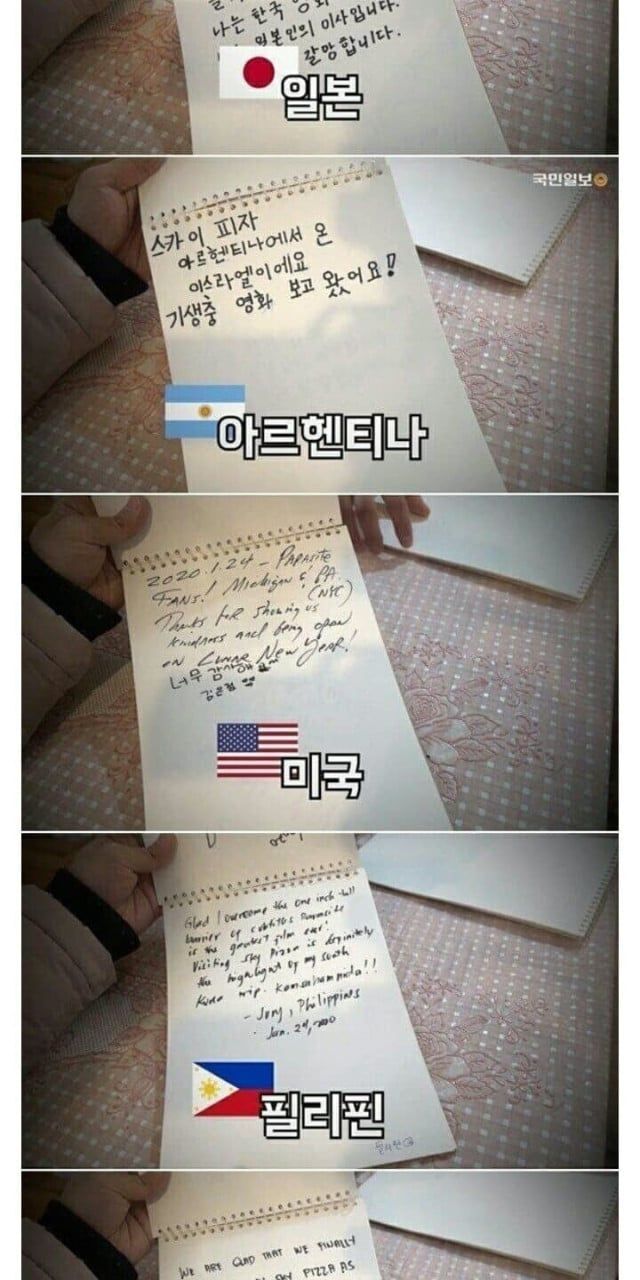 나는 한국 영화
일본인의 이사입니다.
갈망합니다.
일본
국민일보
스카이 피자
아르헨티나에서 온
이스라엘이에요
기생충 영화 보고 왔어요!
아르헨티나
2020.1.24 - PARASITE
FANS! Michigan & PA.
(NYC)
Thanks for showing us
kindness and being open
on Lunar New Year!
너무 감사해요
미국
Glad I overcame the one inch-tall
barrier of subtitles Parasite
is the greatest film ever!
Visiting Sky Pizza is definitely
the highlight of my South
Korea trip. Kamsahamnida!!
- Jury, Philippines
Jan. 24, 2020
필리핀
필리핀
WE ARE GLAD THAT WE FINALLY
SKY PIZZA AS